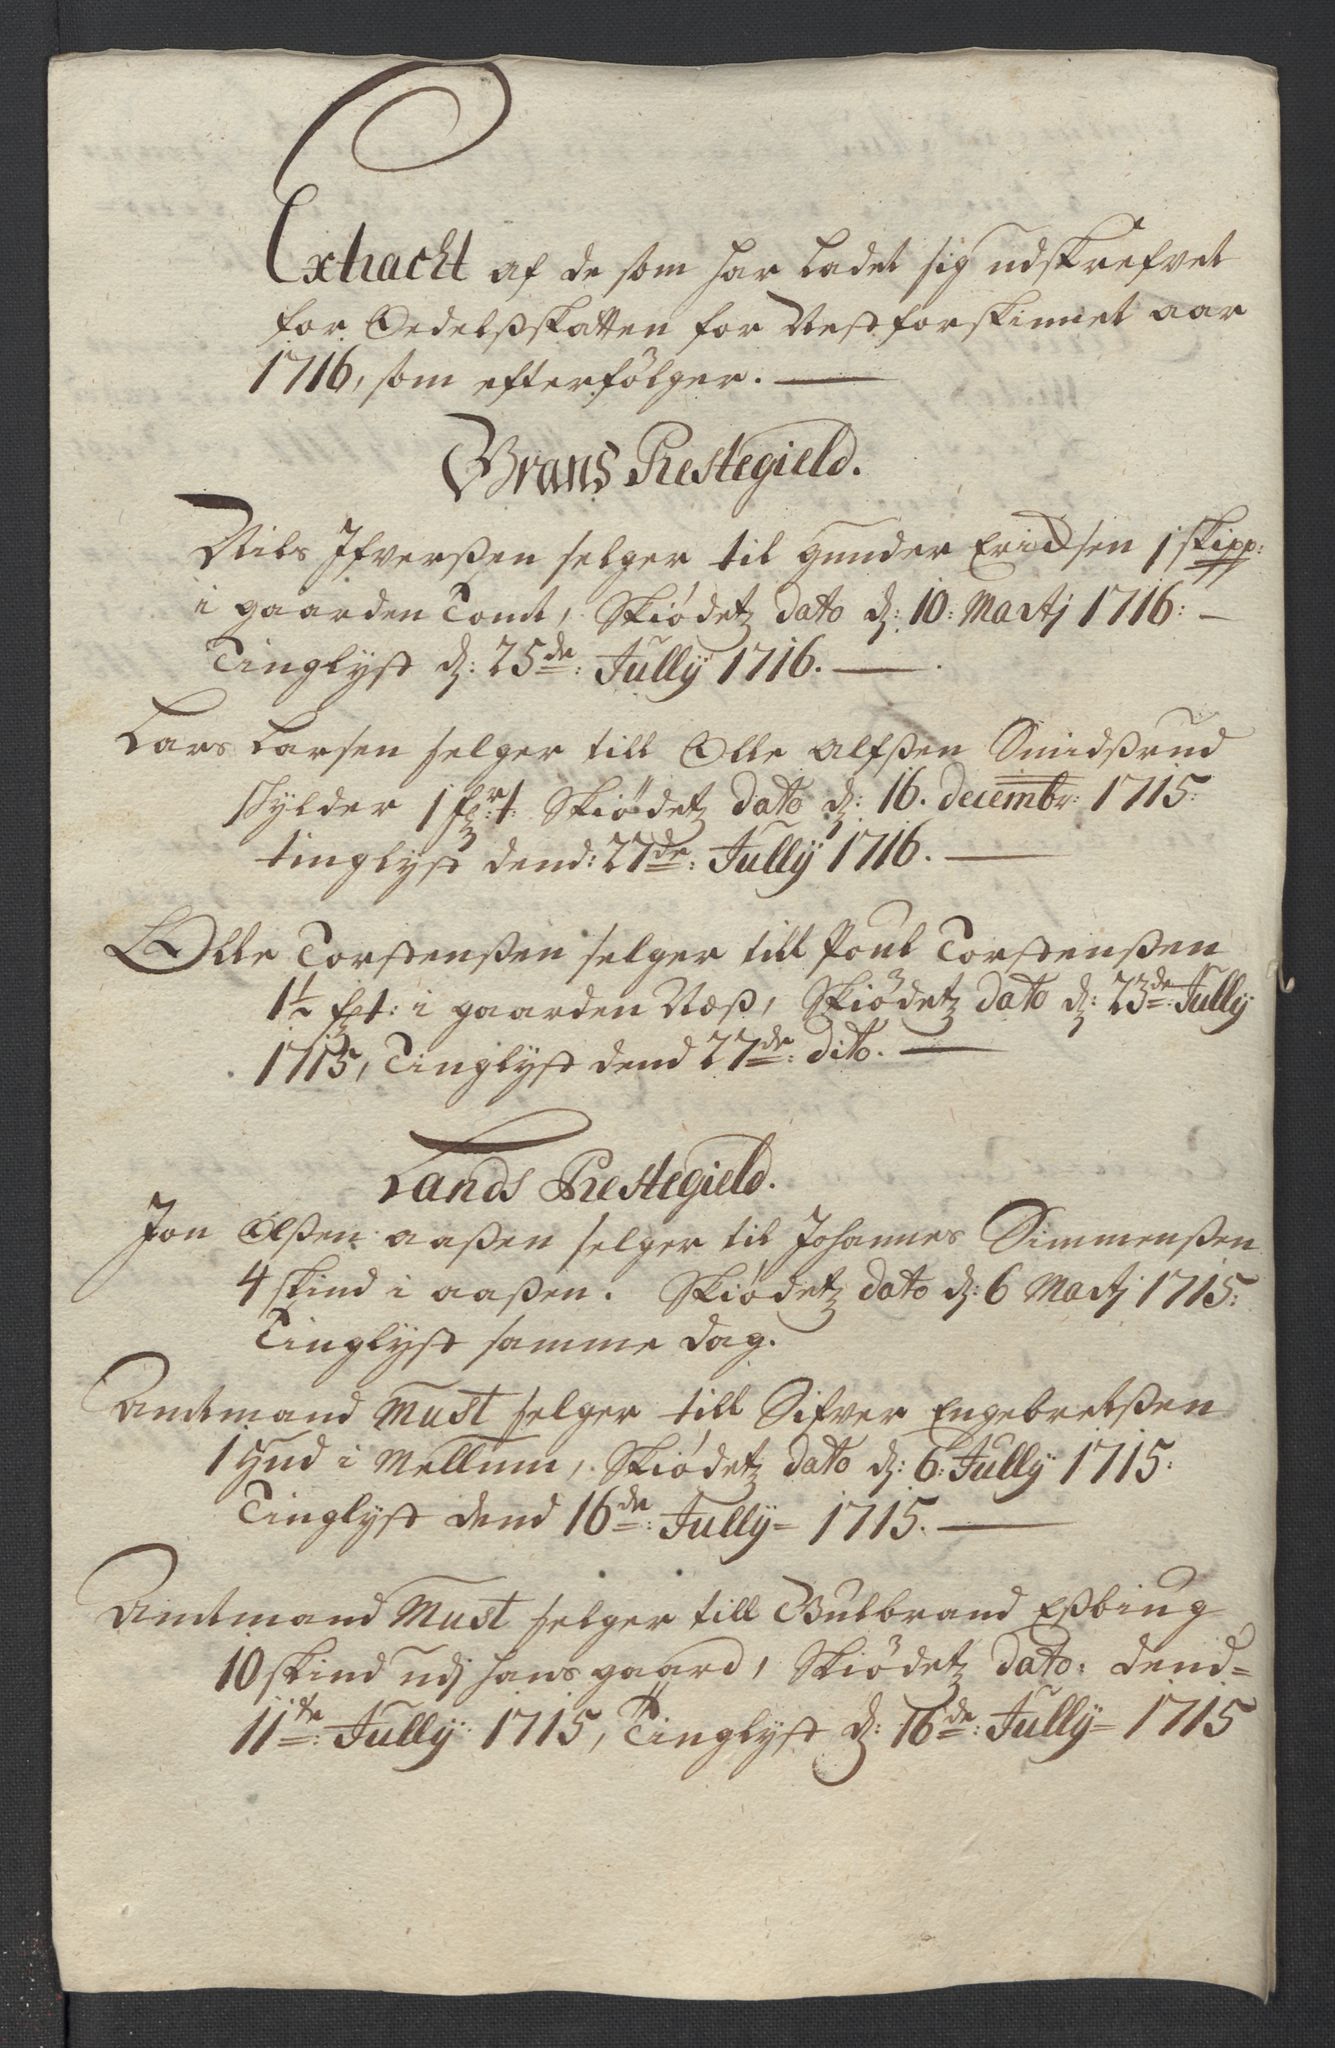 Extract af de som har ladet sig udskrefvet
for Oedelsskatten for Nestforskinnet aar
1716, som efterfølger.
Grans Prestegield.
Nils Ifverßen selger til Gunder Erichsen 1 skipp:
i gaarden Tomt, Skiødetz dato d: 10: Martj 1716:
Tinglyst d: 25de: Jully 1716.
Lars Larsen selger till Olle Alfßen Smidßrud
skylder 1 fr: Skiødetz dato d: 16. decembr: 1715:
tinglyst dend: 27de: Jully 1716.
Olle Torstenßen selger till Poul Torstenßen
1½ i gaarden Næß, Skiødetz dato d: 23de: Jully
1715, Tinglyst dend 27de: dito.
Lands Prestegield.
Jon Olßen aaßen selger til Johannes Simmenßen
4 skind i aaßen. Skiødetz dato d: 6 Martj 1715:
Tinglyst samme dag.
Amtmand Must selger till Sifver Engebretßen
1 Hud i Mellum, Skiødetz dato d: 6: Jully 1715:
Tinglyst dend 16de: Jully= 1715.
Amtmand Must selger till Gulbrand Eßbiug
10 skind udj hans gaard, Skiødetz dato: dend=
11te: Jully: 1715, Tinglyst d: 16de: Jully= 1715